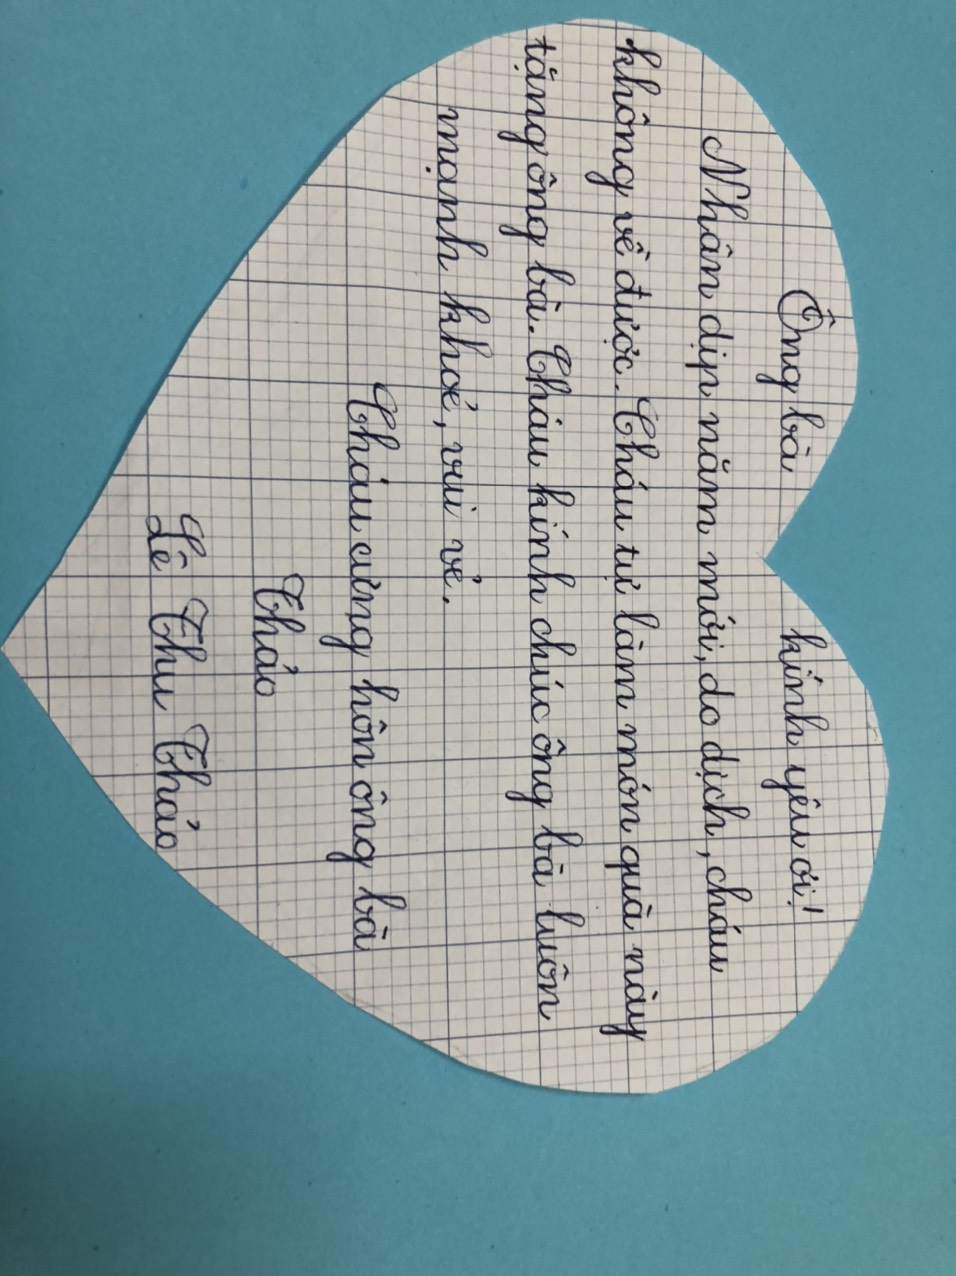 Ông bà kính yêu ơi!
Nhân dịp năm mới, do dịch, cháu
không về được. Cháu tự làm món quà này
tặng ông bà. Cháu kính chúc ông bà luôn
mạnh khoẻ, vui vẻ.
Cháu cưng hôn ông bà
Thảo
Lê Thu Thảo